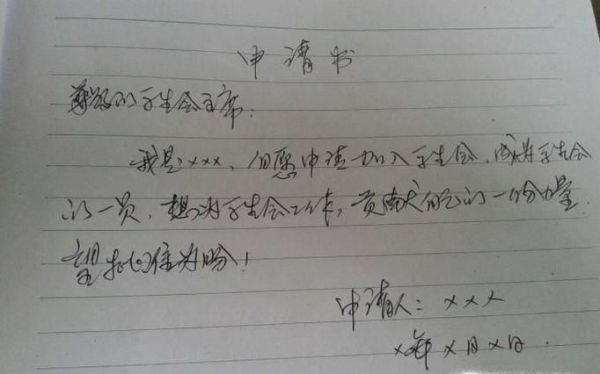 申请书
尊敬的学生会主席:
我是xxx,自愿申请加入学生会,成为学生会
的一员,想为学生会工作,贡献自己的一份力量
望批准为盼!
申请人:xxx
x年x月x日.